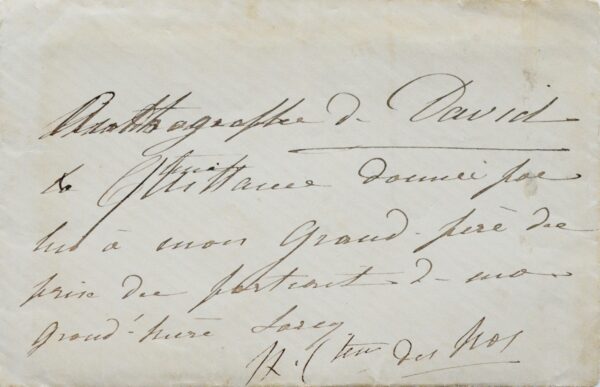 Authographe de David
la Quittance donnée par
lui à mon Grand-père du
prix du portrait de ma
grand'mère
H. Ctesse des Nos